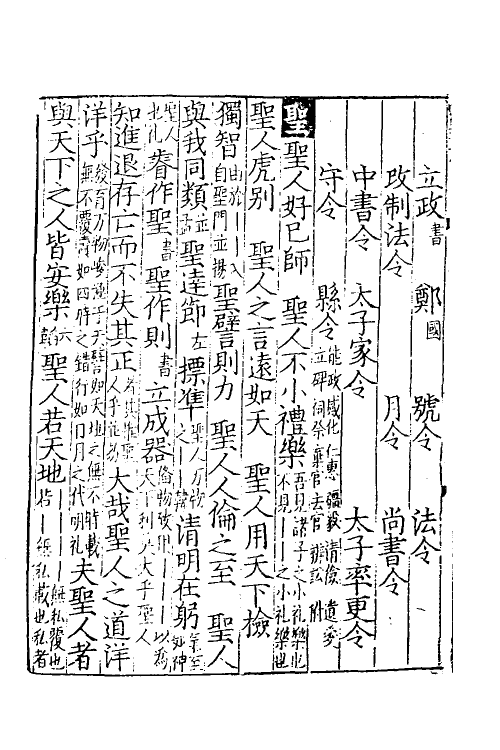 立政書　鄭國　號令　法令
改制法令　月令　尚書令
中書令　太子家令　太子率更令
守令　縣令
聖　聖人好已師　聖人不小禮樂　吾見諸子之小禮樂也不見――之小禮樂也
聖人虎别　聖人之言遠如天　聖人用天下檢
獨智　由於自聖門　並揚　入聖譬則力　聖人人倫之至　聖人
與我同類並孟　聖達節左　標準　聖人万物之――韓　清明在躬　氣志如神
聖人北禮　睿作聖書　聖作則書　立成器　備物致用――――以為天下利莫大乎聖人
知進退存亡而不失其正　者其惟聖人乎　大哉聖人之道洋
洋乎　發育万物峻極乎天　譬如天地之無不持載無不覆幬如四時之錯行如日月之代明禮　夫聖人者
與天下之人皆安樂六韜　聖人若天地　無私覆也　無私載也私者